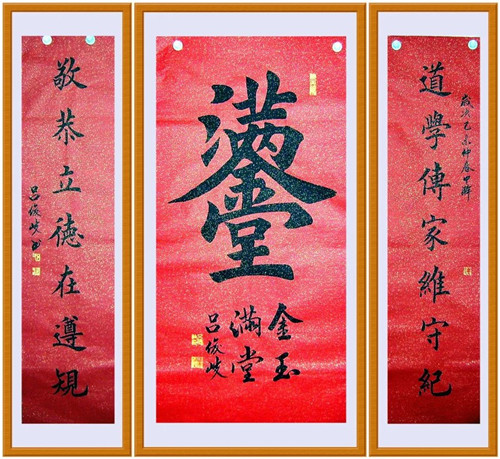 道學傳家維守紀
歲次乙未仲春
金玉
滿堂
呂俊岐
敬恭立德在遵規
呂俊岐書